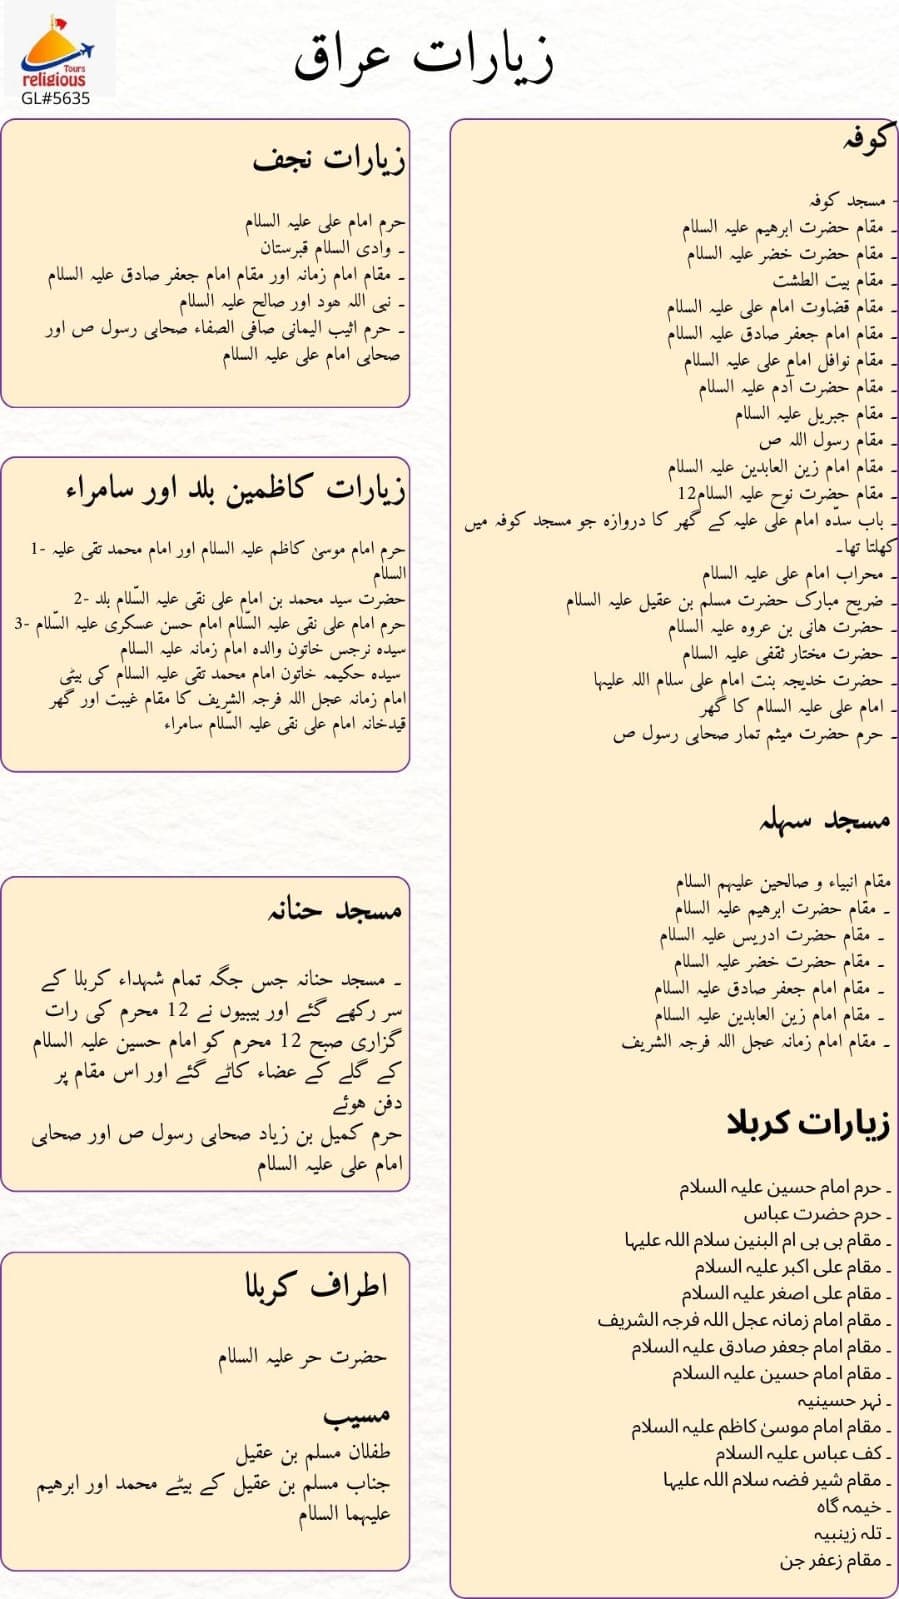 Tours
religious
GL#5635
زیارات عراق
کوفہ
- مسجد کوفہ
۔ مقام حضرت ابرھیم علیہ السلام
۔ مقام حضرت خضر علیہ السلام
۔ مقام بیت الطشت
۔ مقام قضاوت امام علی علیہ السلام
۔ مقام امام جعفر صادق علیہ السلام
۔ مقام نوافل امام علی علیہ السلام
۔ مقام حضرت آدم علیہ السلام
۔ مقام جبریل علیہ السلام
۔ مقام رسول اللہ ص
۔ مقام امام زین العابدین علیہ السلام
۔ مقام حضرت نوح علیہ السلام12
۔ باب سدّہ امام علی علیہ کے گھر کا دروازہ جو مسجد کوفہ میں
کھلتا تھا۔
۔ محراب امام علی علیہ السلام
۔ ضریح مبارک حضرت مسلم بن عقیل علیہ السلام
۔ حضرت ھانی بن عروہ علیہ السلام
۔ حضرت مختار ثقفی علیہ السلام
۔ حضرت خدیجہ بنت امام علی سلام اللہ علیہا
۔ امام علی علیہ السلام کا گھر
۔ حرم حضرت میثم تمار صحابی رسول ص
مسجد سہلہ
مقام انبیاء و صالحین علیہم السلام
۔ مقام حضرت ابرھیم علیہ السلام
۔ مقام حضرت ادریس علیہ السلام
۔ مقام حضرت خضر علیہ السلام
۔ مقام امام جعفر صادق علیہ السلام
۔ مقام امام زین العابدین علیہ السلام
۔ مقام امام زمانہ عجل اللہ فرجہ الشریف
زیارات کربلا
۔ حرم امام حسین علیہ السلام
۔ حرم حضرت عباس
۔ مقام بی بی ام البنین سلام اللہ علیہا
۔ مقام علی اکبر علیہ السلام
۔ مقام علی اصغر علیہ السلام
۔ مقام امام زمانہ عجل اللہ فرجہ الشریف
۔ مقام امام جعفر صادق علیہ السلام
۔ مقام امام حسین علیہ السلام
۔ نہر حسینیہ
۔ مقام امام موسیٰ کاظم علیہ السلام
۔ کف عباس علیہ السلام
۔ مقام شیر فضہ سلام اللہ علیہا
۔ خیمہ گاہ
۔ تلہ زینبیہ
۔ مقام زعفر جن
زیارات نجف
حرم امام علی علیہ السلام
۔ وادی السلام قبرستان
۔ مقام امام زمانہ اور مقام امام جعفر صادق علیہ السلام
۔ نبی اللہ ھود اور صالح علیہ السلام
۔ حرم اثیب الیمانی صافی الصفاء صحابی رسول ص اور
صحابی امام علی علیہ السلام
زیارات کاظمین بلد اور سامراء
حرم امام موسیٰ کاظم علیہ السلام اور امام محمد تقی علیہ -1
السلام
حضرت سید محمد بن امام علی نقی علیہ السّلام بلد -2
حرم امام علی نقی علیہ السّلام امام حسن عسکری علیہ السّلام -3
سیدہ نرجس خاتون والدہ امام زمانہ علیہ السلام
سیدہ حکیمہ خاتون امام محمد تقی علیہ السلام کی بیٹی
امام زمانہ عجل اللہ فرجہ الشریف کا مقام غیبت اور گھر
قیدخانہ امام علی نقی علیہ السّلام سامراء
مسجد حنانہ
۔ مسجد حنانہ جس جگہ تمام شہداء کربلا کے
سر رکھے گئے اور بیبیوں نے 12 محرم کی رات
گزاری صبح 12 محرم کو امام حسین علیہ السلام
کے گلے کے عضاء کاٹے گئے اور اس مقام پر
دفن ہوئے
حرم کمیل بن زیاد صحابی رسول ص اور صحابی
امام علی علیہ السلام
اطراف کربلا
حضرت حر علیہ السلام
مسیب
طفلان مسلم بن عقیل
جناب مسلم بن عقیل کے بیٹے محمد اور ابرھیم
علیہما السلام